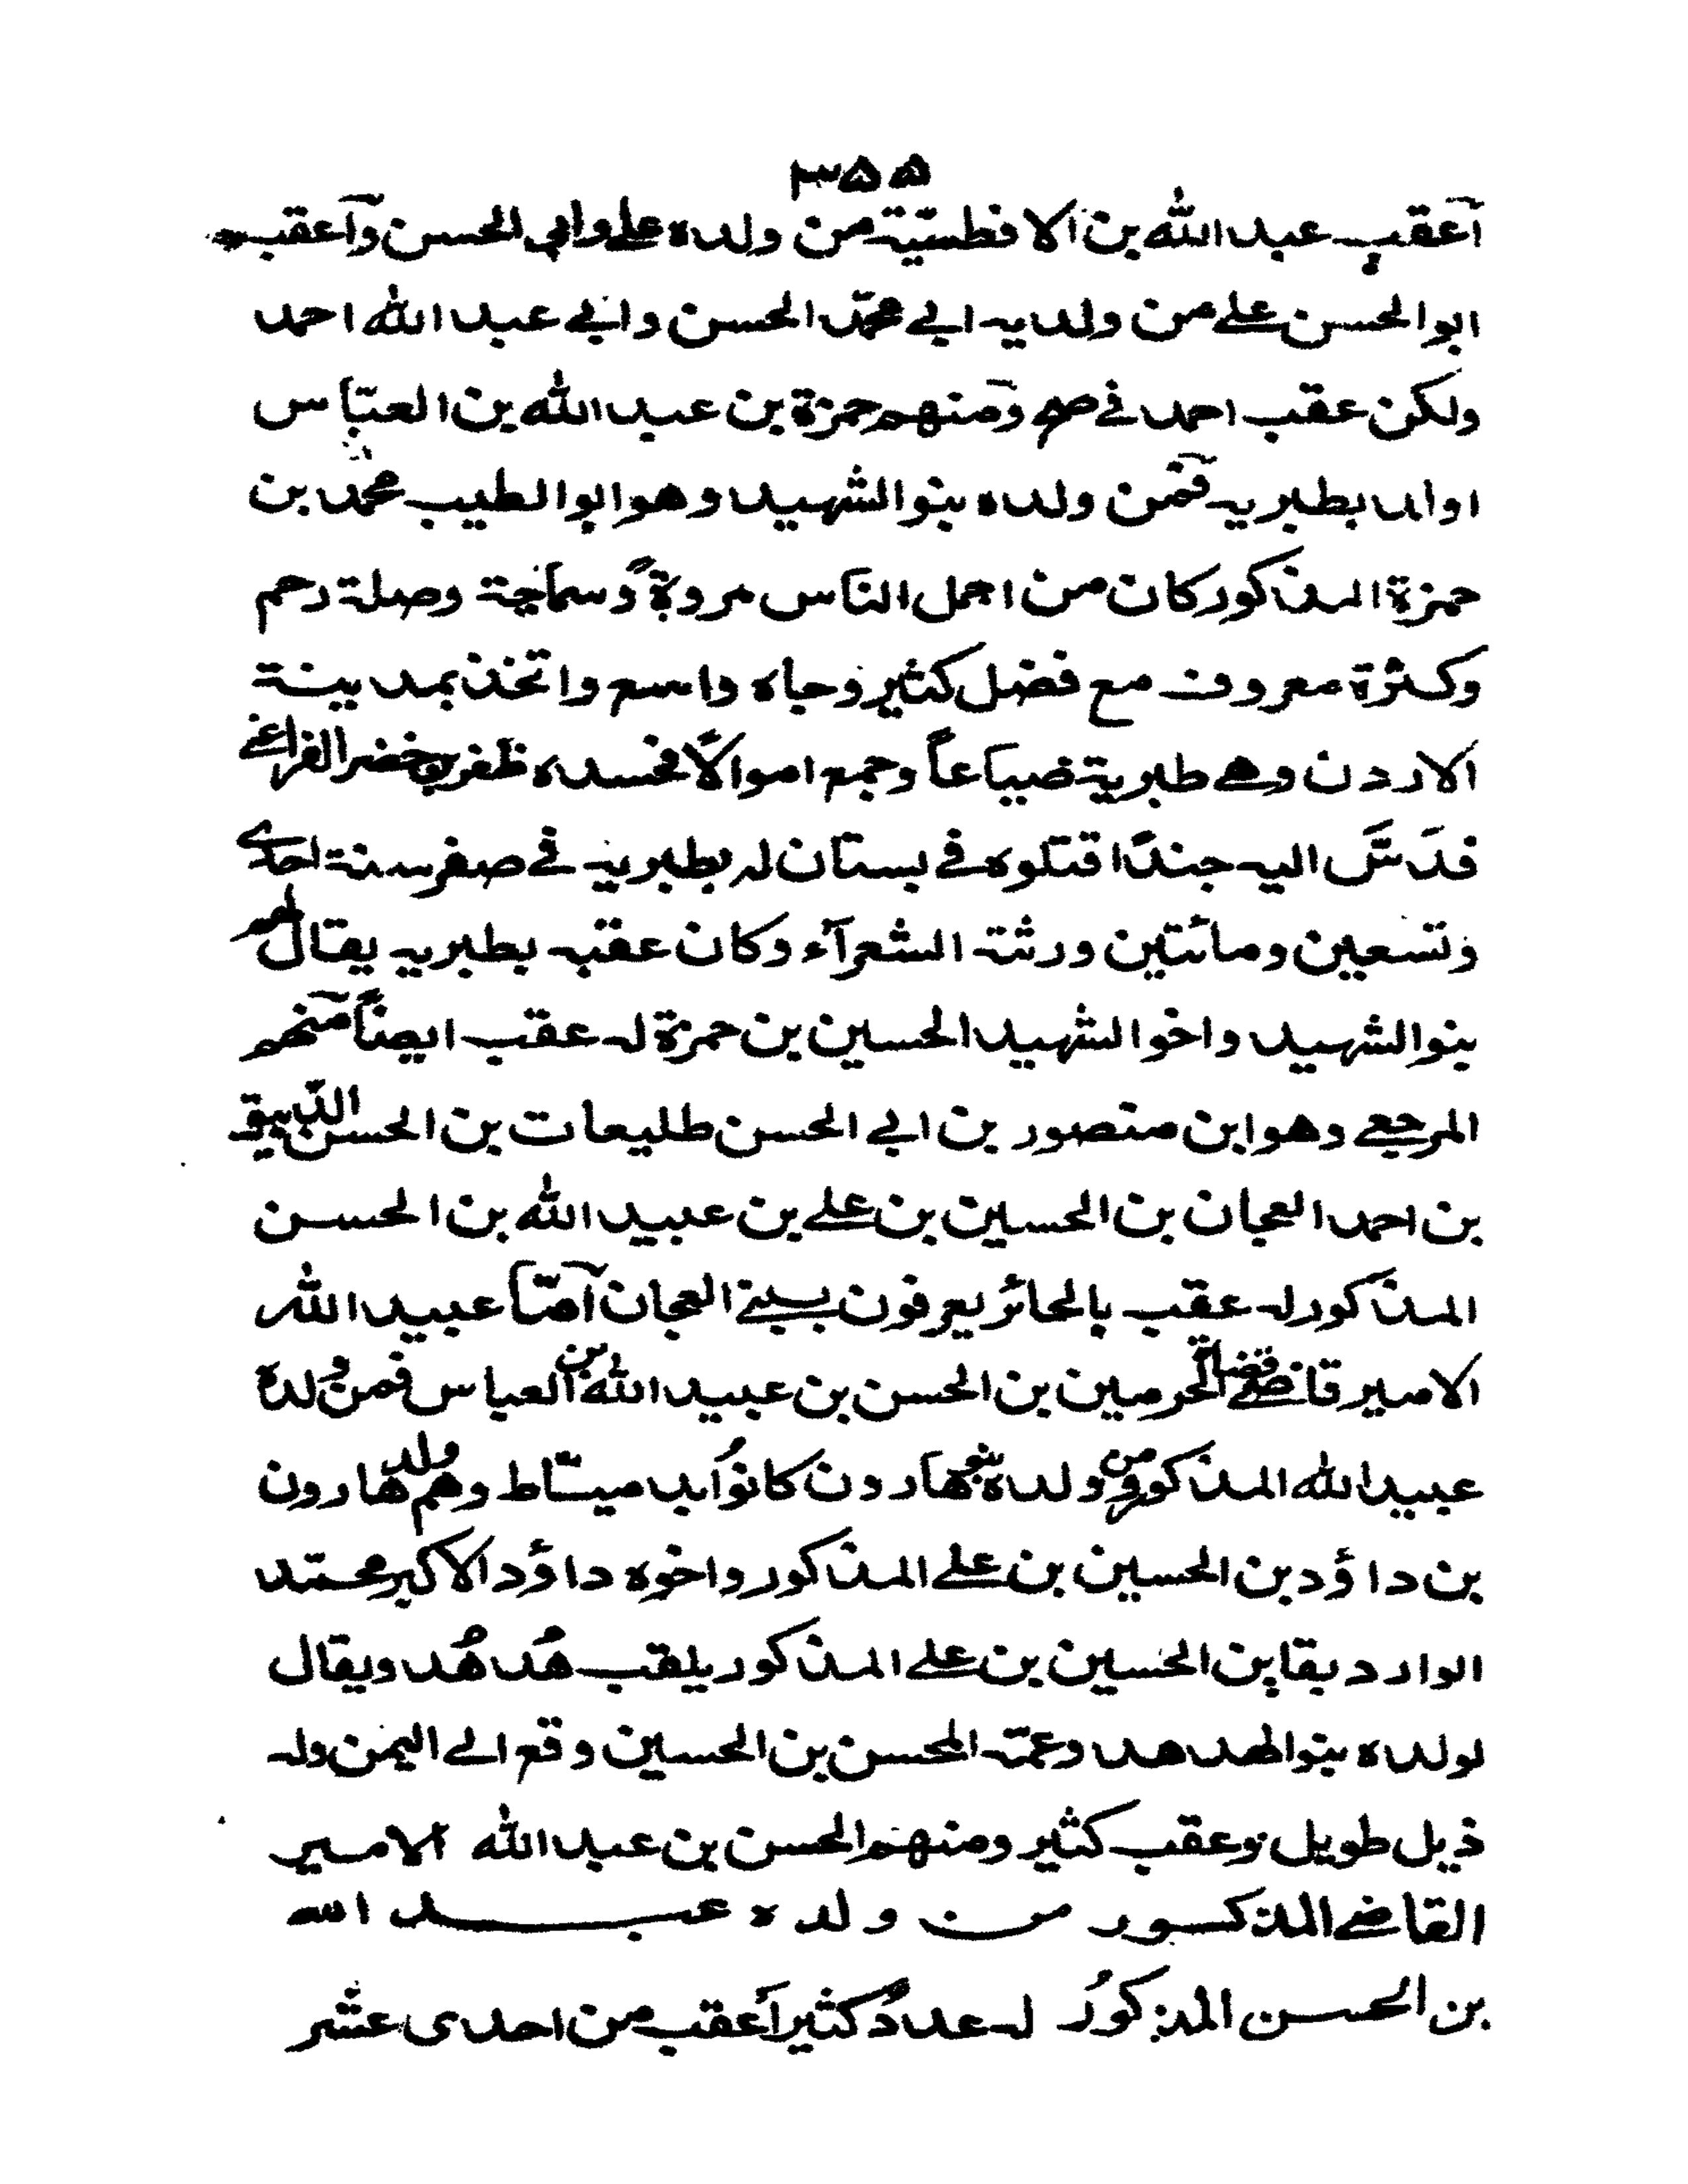 ۳۵۵
أعقب عبد الله بن الافطسيّة من ولده علے وابي الحسن وأعقب
ابو الحسن علے من ولديه ابے محمّد الحسن وابے عبد الله احمد
ولكن عقب احمد فے صح ومنهم حمزة بن عبد الله بن العبّاس
اولد بطبريه فمن ولده بنو الشهيد وهو ابو الطيب محمد بن
حمزة المذكور كان من اجمل الناس مروةً وسماحة وصلة رحم
وكثرة معروف مع فضل كثير وجاه واسع واتخذ بمدينة
الاردن وهے طبرية ضياعاً وجمع اموالًا فحسده ظفر بن خضر الفراغے
فدَسَّ اليه جندًا قتلوه فے بستان له بطبريه فے صفر سنة احدے
وتسعين ومائتين ورثته الشعرآء وكان عقبه بطبريه يقال لهم
بنو الشهيد واخو الشهيد الحسين بن حمزة له عقب ايضاً منهم
المرجعے وهو ابن منصور بن ابے الحسن طليعات بن الحسن الدبيق
بن احمد العجان بن الحسين بن علے بن عبيد الله بن الحسن
المذكور له عقب بالحائر يعرفون ببنے العجان أمّا عبيد الله
الامير قاضے قضاة الحرمين بن الحسن بن عبيد الله بن العباس فمن ولده
عبيد الله المذكور ومن ولده بنو هارون كانوا بدمياط وهم ولد هارون
بن داؤد بن الحسين بن علے المذكور واخوه داؤد الاكبر محمّد
الوارد بقا بن الحسين بن علے المذكور يلقب هُدهُد ويقال
لولده بنو الهدهد وعمّه المحسن بن الحسين وقع الے اليمن وله
ذيل طويل وعقب كثير ومنهم الحسن بن عبد الله الامير
القاضے المذكور من ولده عبد الله
بن الحسن المذكورُ له عددٌ كثير أعقب من احدى عشر